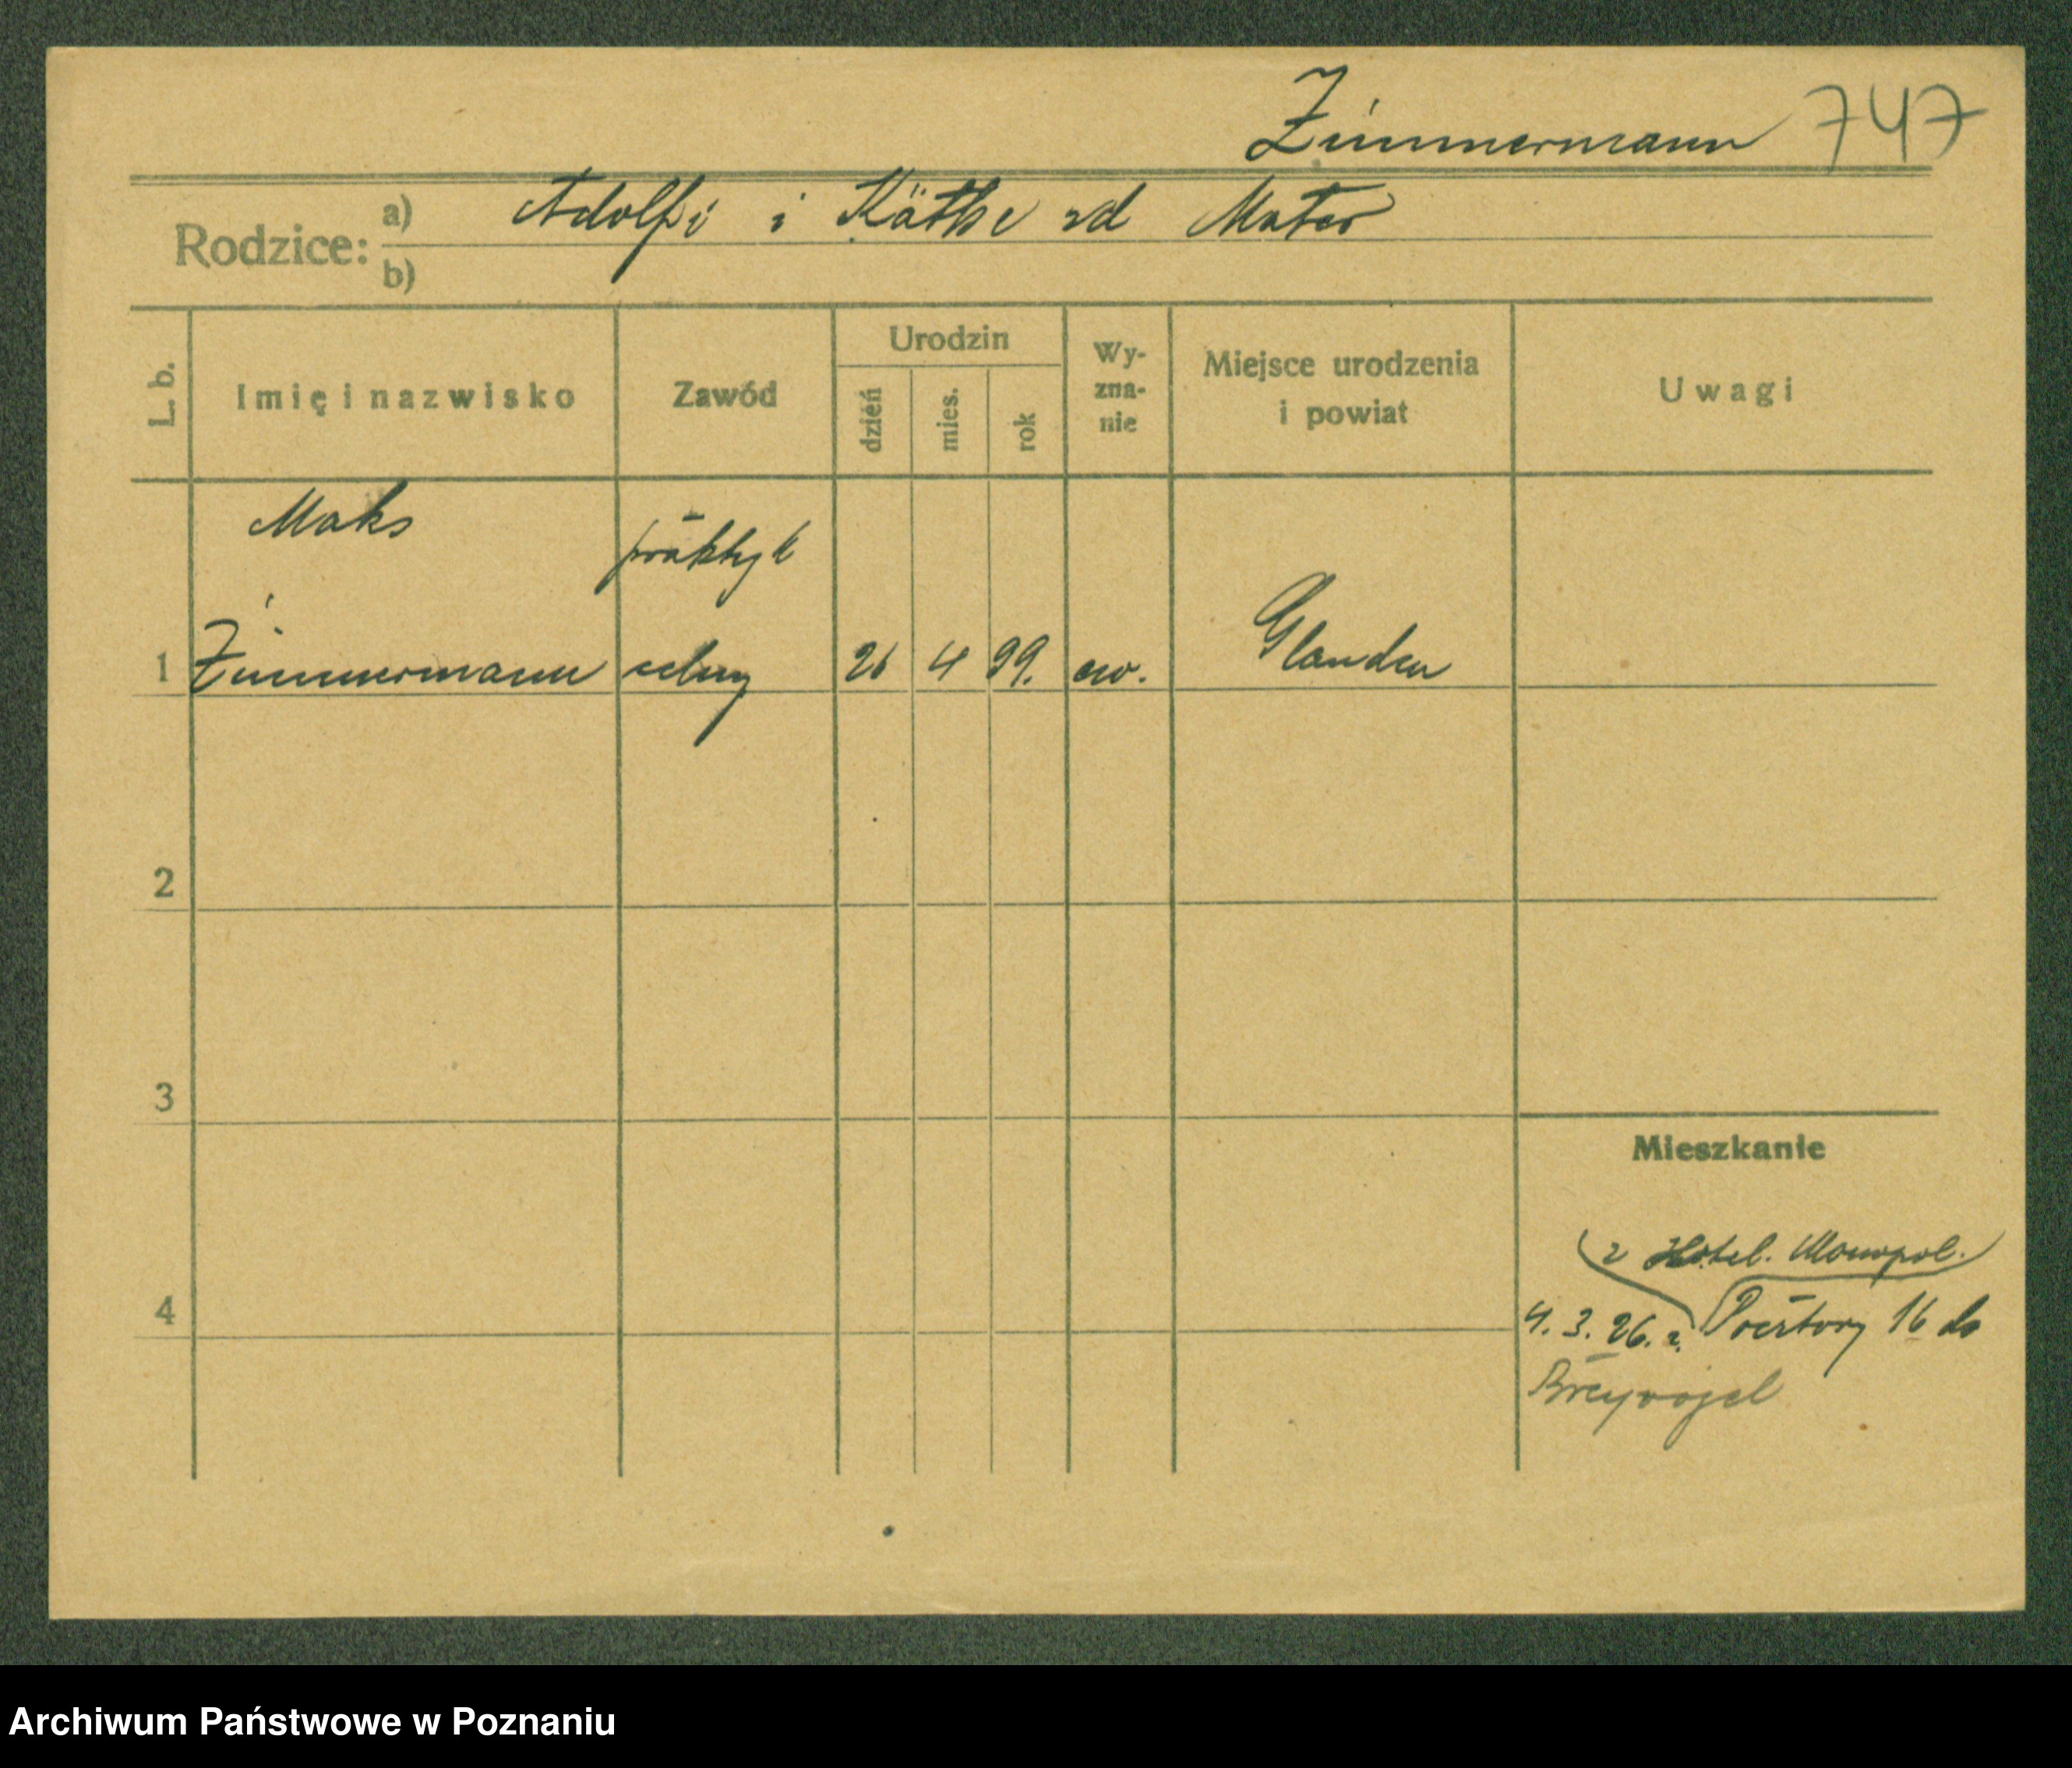 Zimmermann 747
Rodzice: a) Adolf i Käthe zd Mater
b)
L. b. Imię i nazwisko Zawód Urodzin dzień mies. rok Wy-zna-nie Miejsce urodzenia i powiat Uwagi
Maks praktyk
1 Zimmermann rolny 26 4 99. ew. Glanden
2
3
Mieszkanie
z Hotel. Monopol.
4
4. 3. 26. z. Pocztowy 16 do
Breyvogel
Archiwum Państwowe w Poznaniu